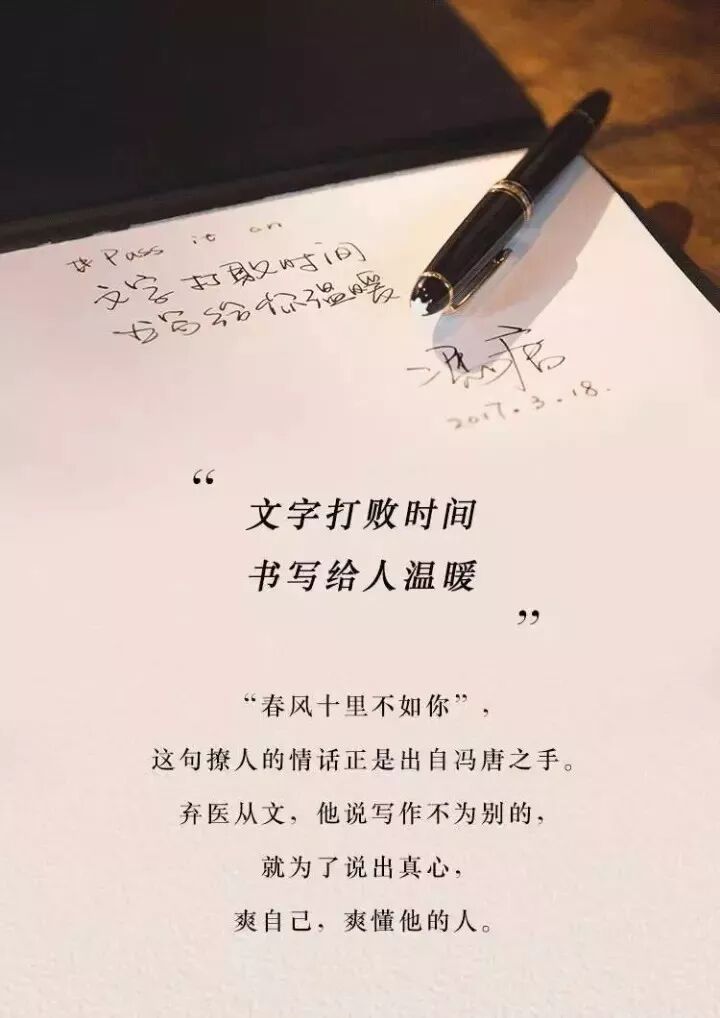 #Pass it on
文字打败时间
书写给你温暖
冯唐
2017.3.18.
“
文字打败时间
书写给人温暖
”
“春风十里不如你”，
这句撩人的情话正是出自冯唐之手。
弃医从文，他说写作不为别的，
就为了说出真心，
爽自己，爽懂他的人。